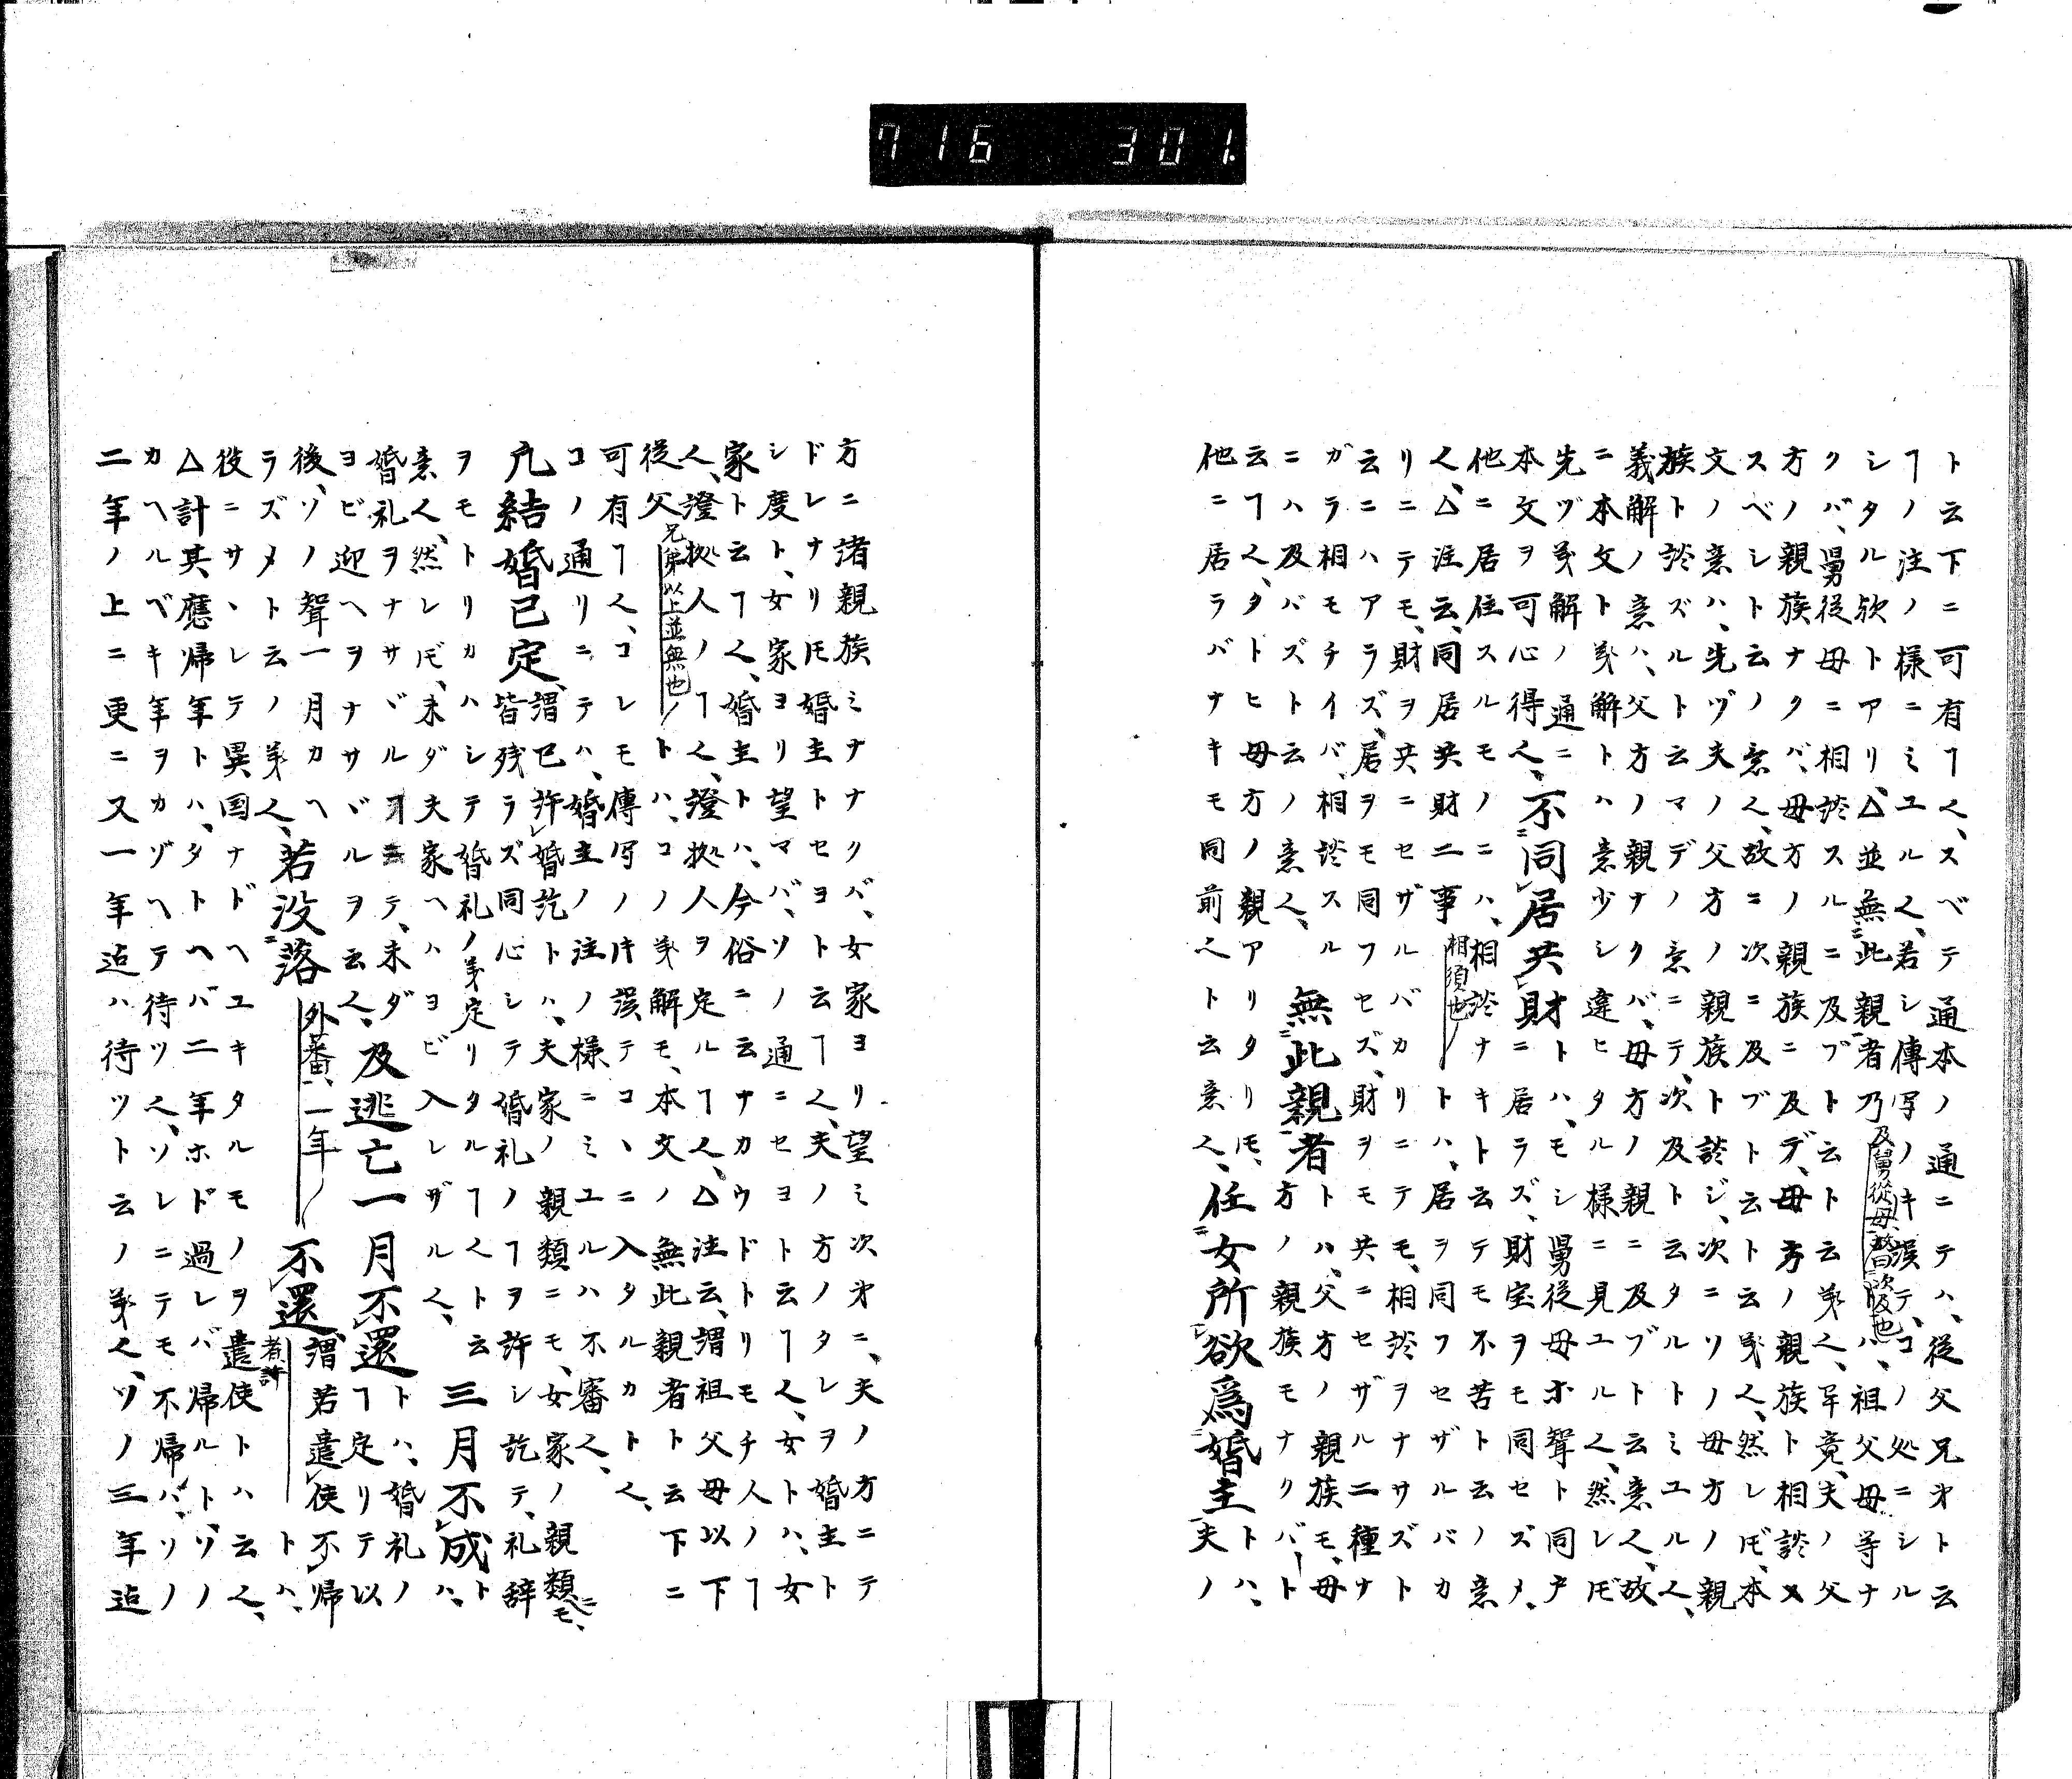 716 301.
ト云下ニ可有ヿ也、スベテ通本ノ通ニテハ、従父兄弟ト云
ヿノ注ノ様ニミユル也、若シ傳写ノ片誤テ、コノ処ニシル
シタル歟トアリ、△並無此親者乃及舅従母、ハ、祖父母等ナ
クバ、舅従母ニ相談スルニ及ブト云ト云義也、畢竟、夫ノ父
方ノ親族ナクバ、母方ノ親族ニ及デ、母方ノ親族ト相談
スベシト云ノ意也、故ニ次ニ及ブト云ト云義也、然レ𪜈、本
文ノ意ハ、先ヅ夫ノ父方ノ親族ト談ジ、次ニソノ母方ノ親
族ト談ズルト云マデノ意ニテ、次及ト云タルトミユル也、
義解ノ意ハ、父方ノ親ナクバ、母方ノ親ニ及ブト云意也、故
ニ本文ト義解トハ意少シ違ヒタル様ニ見ユル也、然レ𪜈
先ヅ義解ノ通ニ
本文ヲ可心得也、不同居共財トハ、モシ舅従母ホ聟ト同戸
ニ居ラズ、財宝ヲモ同セズメ、
他ニ居住スルモノニハ、相談ナキト云テモ不苦ト云ノ意
也、△注云、同居共財二事相須也トハ、居ヲ同フセザルバカ
リニテモ、財ヲ共ニセザルバカリニテモ、相談ヲナサズト
云ニハアラズ、居ヲモ同フセズ、財ヲモ共ニセザル二種ナ
ガラ相モチイバ、相談スル
ニハ及バズト云ノ意也、無此親者トハ、父方ノ親族モ、母
方ノ親族モナクバト
云ヿ也、タトヒ母方ノ親アリタリ𪜈、
他ニ居ラバナキモ同前之ト云意也、任女所欲爲婚主トハ、
夫ノ
方ニ諸親族ミナナクバ、女家ヨリ望ミ次第ニ、夫ノ方ニテ
ドレナリ𪜈婚主トセヨト云ヿ也、夫ノ方ノタレヲ婚主ト
シ度ト、女家ヨリ望マバ、ソノ通ニセヨト云ヿ也、女トハ、女
家ト云ヿ也、婚主トハ、今俗ニ云ナカウドトリモチ人ノヿ
也、證拠人ノヿ也、證拠人ヲ定ルヿ也、△注云、謂祖父母以下
従父兄弟以上並無也トハ、コノ義解モ、本文ノ無此親者ト云下ニ
可有ヿ也、コレモ傳写ノ片誤テコヽニ入タルカト也、
コノ通リニテハ、婚主ノ注ノ様ニミユルハ不審也、
凡結婚已定、謂已許婚訖トハ、夫家ノ親類ニモ、女家ノ親類ニモ、
皆残ラズ同心シテ婚礼ノヿヲ許シ訖テ、礼辞
ヲモトリカハシテ婚礼ノ義定リタルヿ也ト云
意也、然レ𪜈、未ダ夫家ヘハヨビ入レザル也、三月不成ハ、ト
婚礼ヲナサヾルヿニテ、未ダ
トハ、婚礼ノ
ヨビ迎ヘヲナサヾルヲ云也、及逃亡一月不還ヿ定リテ以
後、ソノ聟一月カヘ
ラズメト云ノ義也、若没落外蕃、一年不還、謂若遣使不帰
者許
トハ、
役ニサヽレテ異国ナドヘユキタルモノヲ遣使トハ云也、
△計其應帰年トハ、タトヘバ二年ホド過レバ帰ルト、ソノ
カヘルベキ年ヲカゾヘテ待ツ也、ソレニテモ不帰ハ、ソノ
二年ノ上ニ更ニ又一年迠ハ待ツト云ノ義也、ソノ三年迠